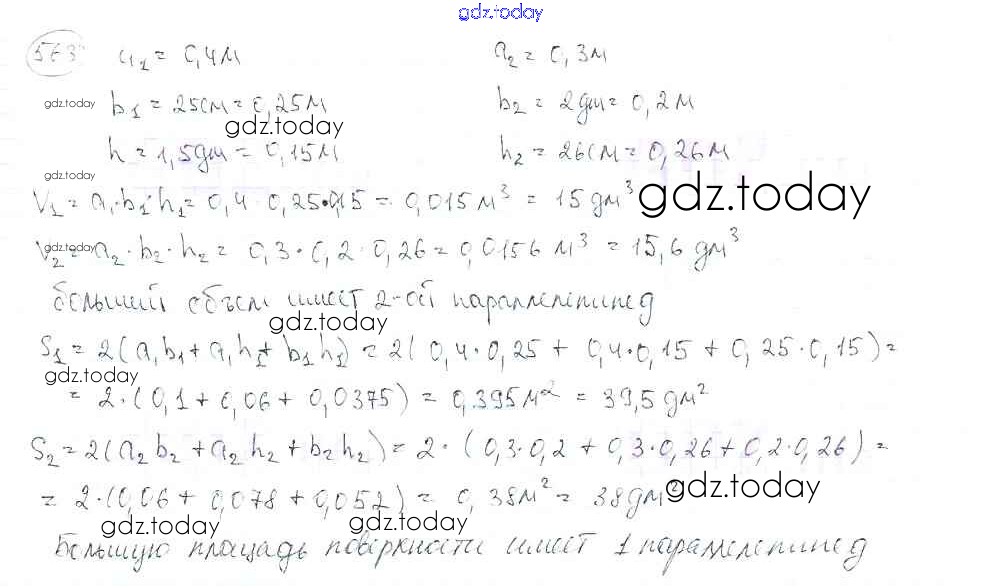 gdz.today
563 a₁ = 0,4м a₂ = 0,3м
gdz.today b₁ = 25см = 0,25м b₂ = 2дм = 0,2м
gdz.today
h = 1,5дм = 0,15м h₂ = 26см = 0,26м
gdz.today
V₁ = a₁·b₁·h₁ = 0,4·0,25·0,15 = 0,015м³ = 15дм³ gdz.today
gdz.today V₂ = a₂·b₂·h₂ = 0,3·0,2·0,26 = 0,0156 м³ = 15,6 дм³
больший объем имеет 2-ой параллелепипед
gdz.today
S₁ = 2(a₁b₁ + a₁h₁ + b₁h₁) = 2(0,4·0,25 + 0,4·0,15 + 0,25·0,15) =
gdz.today
= 2·(0,1 + 0,06 + 0,0375) = 0,395м² = 39,5дм²
S₂ = 2(a₂b₂ + a₂h₂ + b₂h₂) = 2·(0,3·0,2 + 0,3·0,26 + 0,2·0,26) =
= 2·(0,06 + 0,078 + 0,052) = 0,38м² = 38дм² gdz.today
gdz.today gdz.today
Большую площадь поверхности имеет 1 параллелепипед